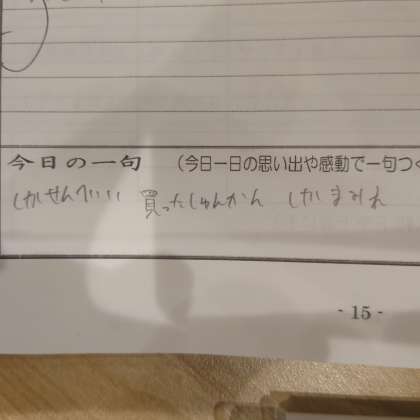 今日の一句 (今日一日の思い出や感動で一句つく
しかせんべいい 買ったしゅんかん しかまみれ
- 15 -